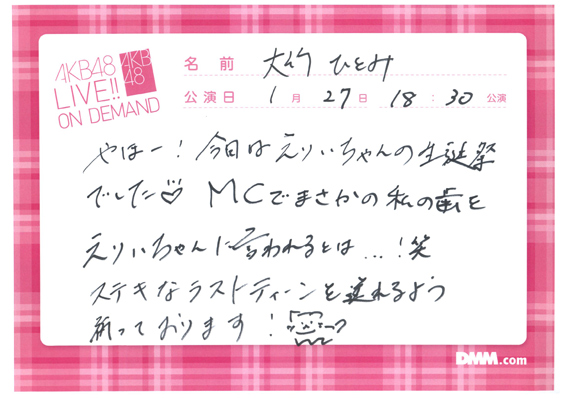 AKB48
LIVE!!
ON DEMAND
AKB
48
名前 大竹 ひとみ
公演日 1月 27日 18:30 公演
やほー！今日はえりぃちゃんの生誕祭
でした♡ MCでまさかの私の歯を
えりぃちゃんに言われるとは…！笑
ステキなラストティーンを送れるよう
祈っております！
DMM.com